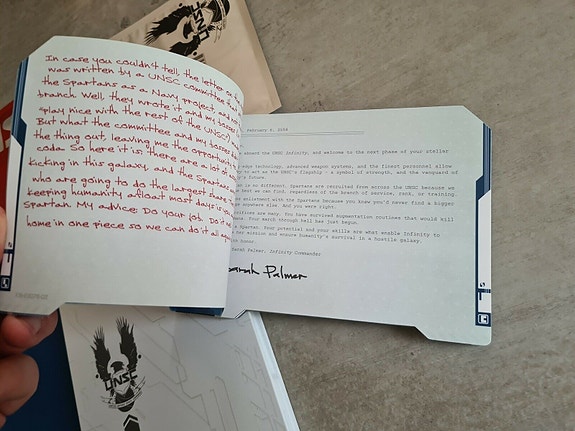 UNSC
In case you couldn't tell, the letter
was written by a UNSC committee
the Spartans as a Navy project, and not
branch. Well, they wrote it and my bosses
play nice with the rest of the UNSC
But what the committee and my bosses
the thing out, leaving me the opportunity
coda. So here it is: there are a lot of
kicking in this galaxy, and the Spartans
who are going to do the largest share
keeping humanity afloat most days.
Spartan. My advice: Do your job. Do it
home in one piece so we can do it all
February
aboard the UNSC Infinity, and welcome to the next phase of your stellar
technology, advanced weapon systems, and the finest personnel allow
to act as the UNSC's flagship - a symbol of strength, and the vanguard of
future.
is no different. Spartans are recruited from across the UNSC because we
best we can find, regardless of the branch of service, rank, or training.
enlistment with the Spartans because you knew you'd never find a bigger
anywhere else. And you were right.
are many. You have survived augmentation routines that would kill
Your march through hell has just begun.
a Spartan. Your potential and your skills are what enable Infinity to
her mission and ensure humanity's survival in a hostile galaxy.
honor.
Sarah Palmer, Infinity Commander
Sarah Palmer
UNSC